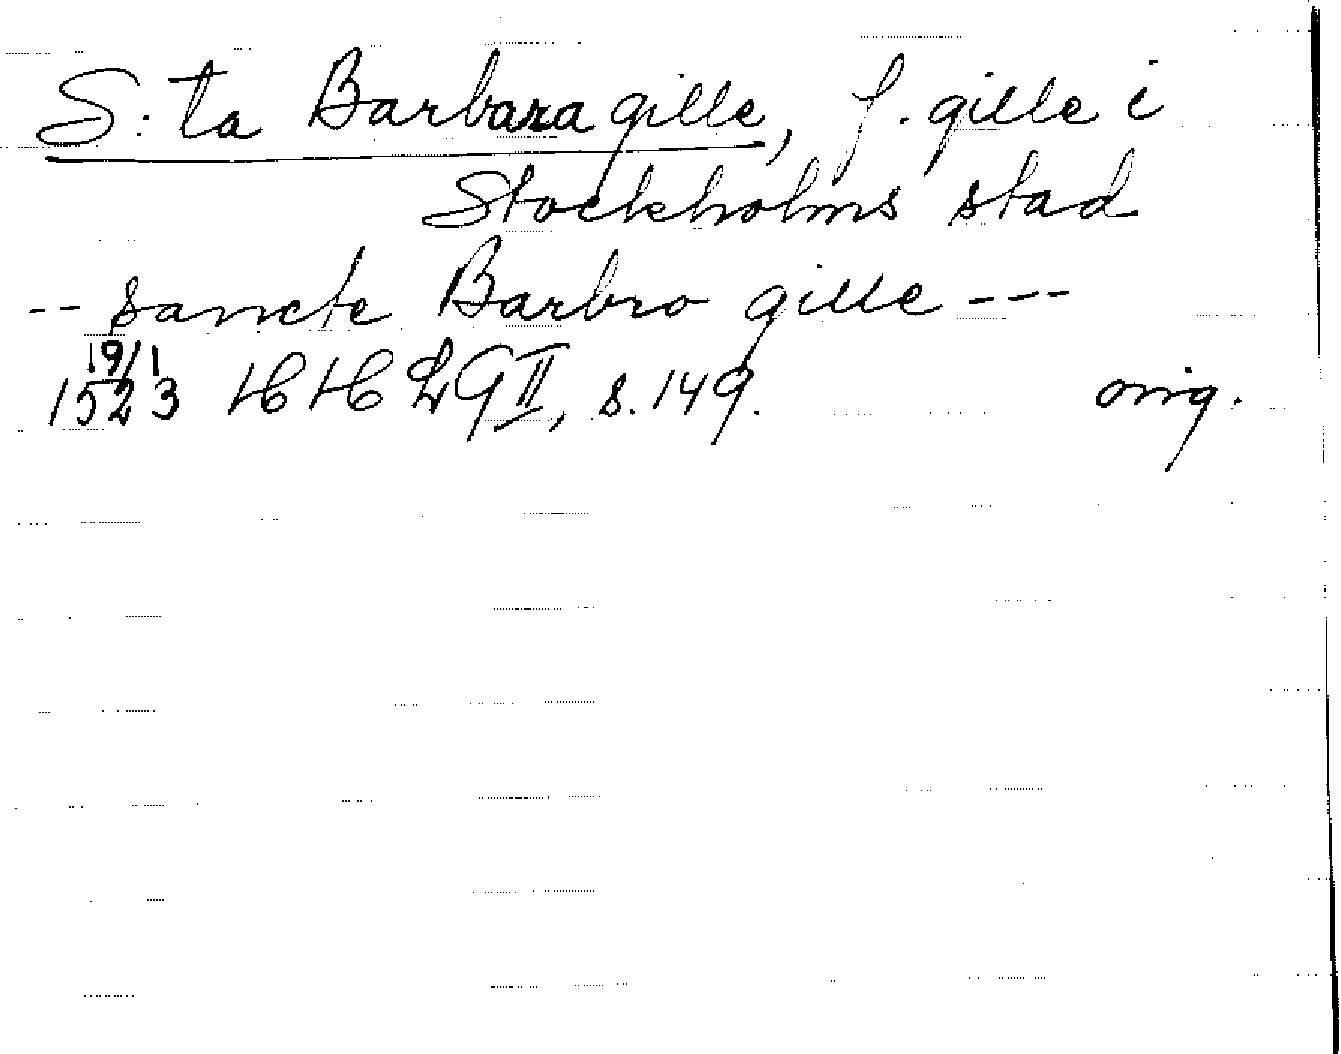 S:ta Barbaragille, f. gille i
Stockholms stad
-- sancte Barbro gille ---
19/1
1523 HH LG II, s. 149. orig.